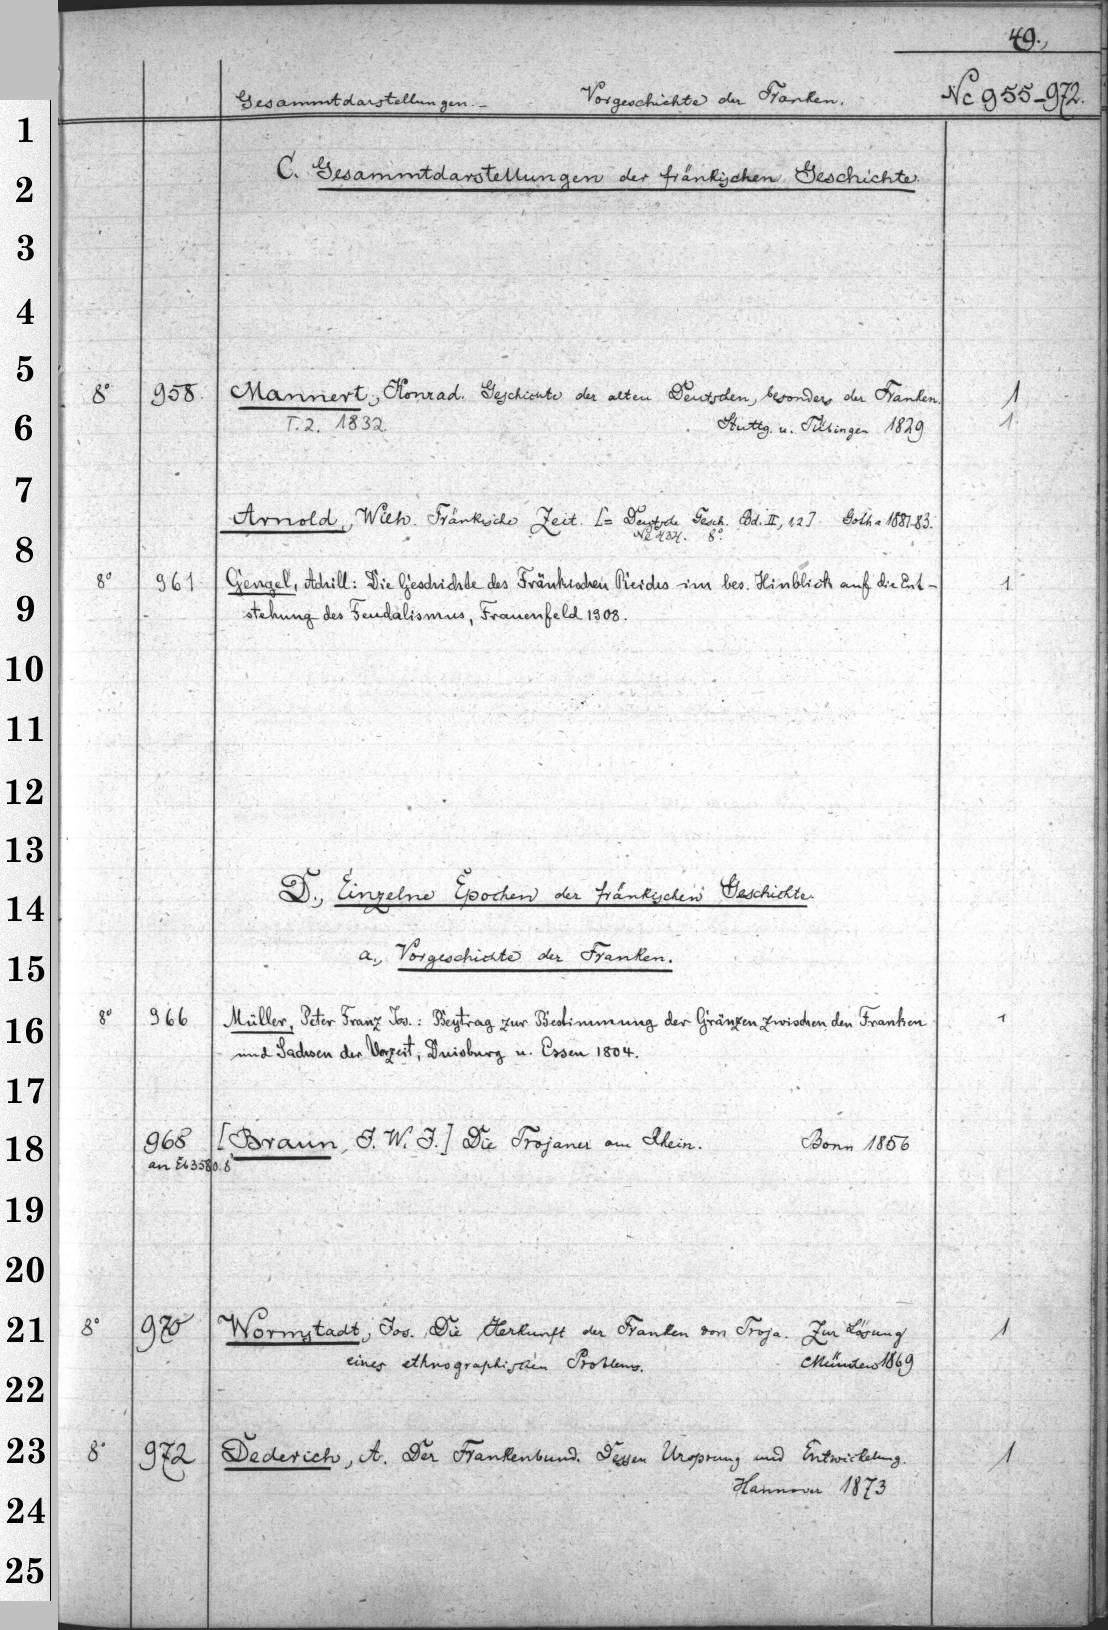 49.,
Gesammtdarstellungen. - Vorgeschichte der Franken. Nc 955-972.
1
C. Gesammtdarstellungen der fränkischen Geschichte.
2
3
4
5
8° 958. Mannert, Konrad. Geschichte der alten Deutschen, besonders der Franken. 1
6 T. 2. 1832 Stuttg. u. Tübingen 1829 1.
7
Arnold, Wilh. Fränkische Zeit. [= Deutsche Gesch. Bd. II, 1.2] Gotha 1881-83.
8 8°.
8° 961 Gengel, Achill: Die Geschichte des Fränkischen Reiches im bes. Hinblick auf die Ent- 1
9 stehung des Feudalismus, Frauenfeld 1908.
10
11
12
13
14 D., Einzelne Epochen der fränkischen Geschichte.
15 a., Vorgeschichte der Franken.
8° 966 Müller, Peter Franz Jos.: Beytrag zur Bestimmung der Gränzen zwischen den Franken 1
16 und Sachsen der Vorzeit, Duisburg u. Essen 1804.
17
18 968 [Braun, J. W. J.] Die Trojaner am Rhein. Bonn 1856
an Eb 3580. 8°
19
20
21 8° 970 Wormstadt, Jos. Die Herkunft der Franken von Troja. Zur Lösung 1
eines ethnographischen Problems. Münster 1869
22
23 8° 972 Dederich, A. Der Frankenbund. Dessen Ursprung und Entwickelung. 1
Hannover 1873
24
25